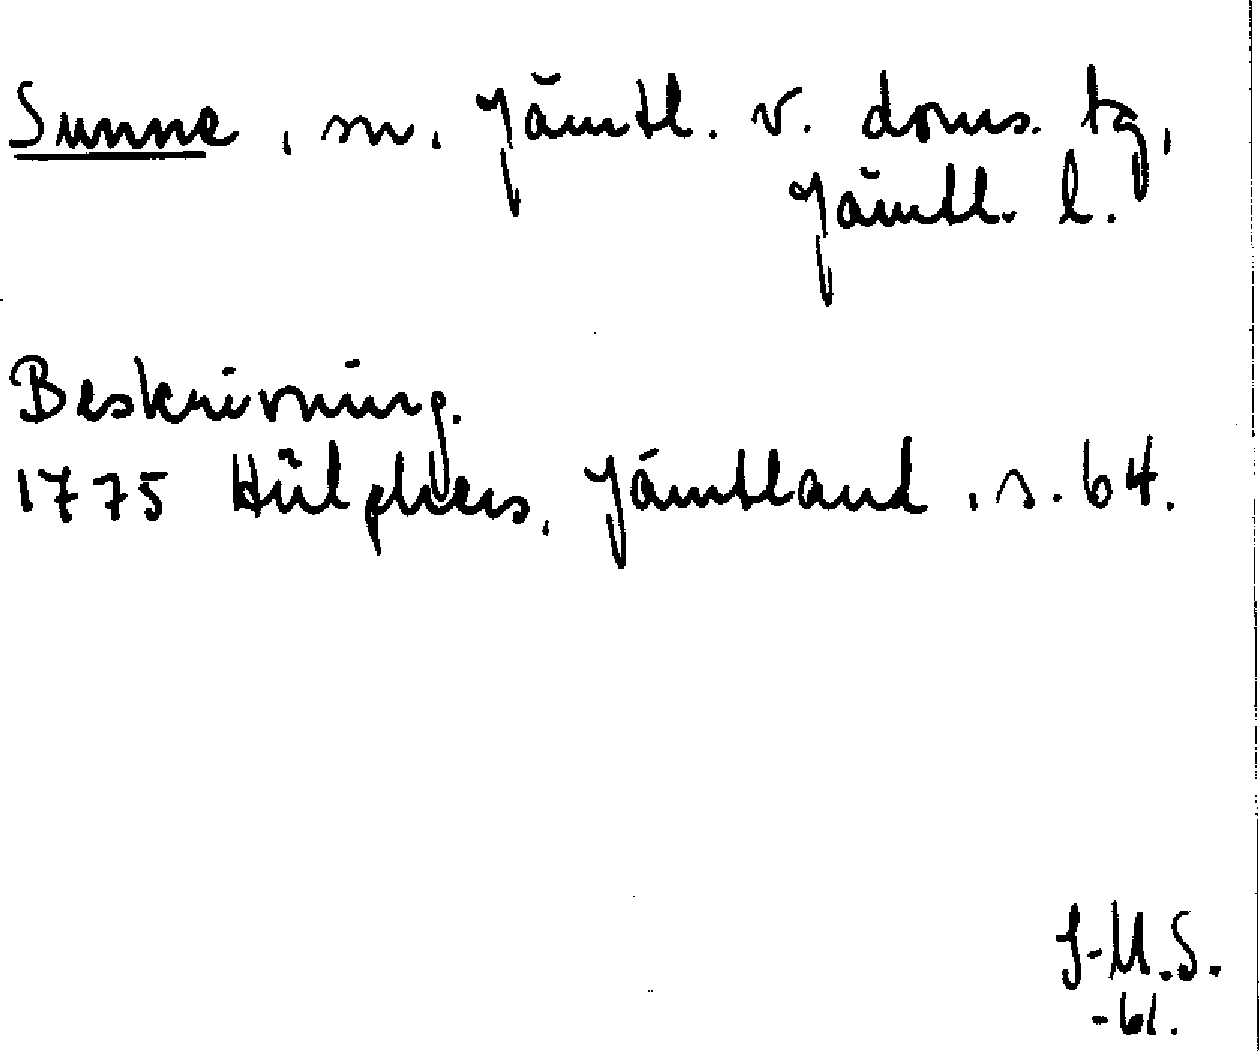 Sunne, sn. Jämtl. v. doms. tg,
Jämtl. l.
Beskrivning.
1775 Hülphers, Jämtland, s. 64.
J-M.S.
-61.